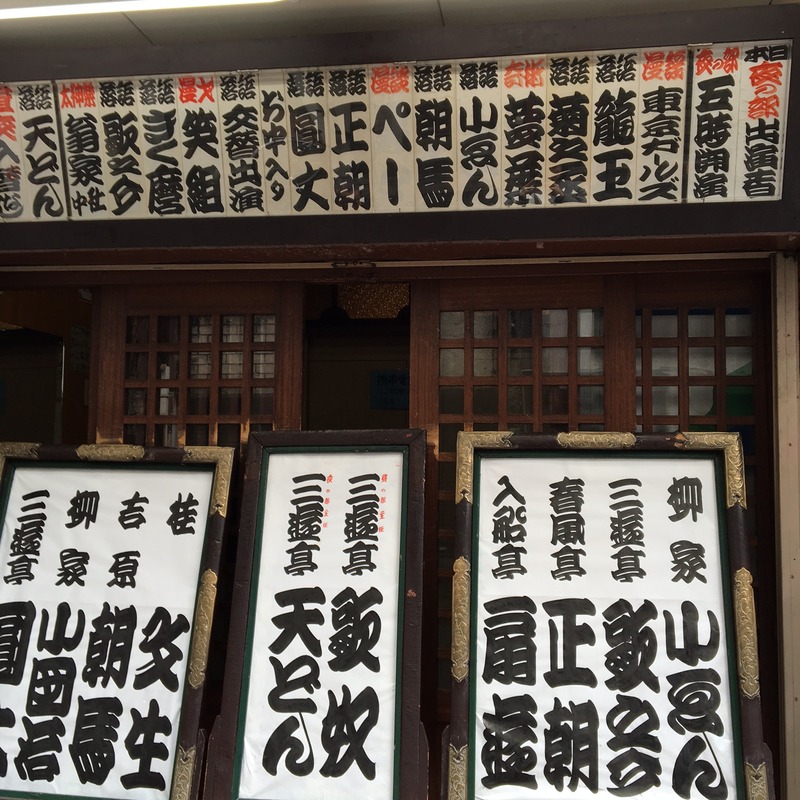 本日夜の部出演者
夜の部 五階開演
漫談 東京ガールズ
落語 籠玉
落語 菊之丞
奇術 夢葉
落語 小ゑん
落語 朝馬
漫談 ペー
落語 正朝
落語 圓丈
お中入り
落語 交替出演
漫才 笑組
落語 きく麿
落語 歌之介
太神楽 翁家社中
落語 天どん
柳家 小ゑん
三遊亭 歌之介
春風亭 正朝
入船亭 扇遊
昼の部主任
三遊亭 歌奴
夜の部主任
三遊亭 天どん
桂 文生
吉原 朝馬
柳家
三遊亭 圓丈